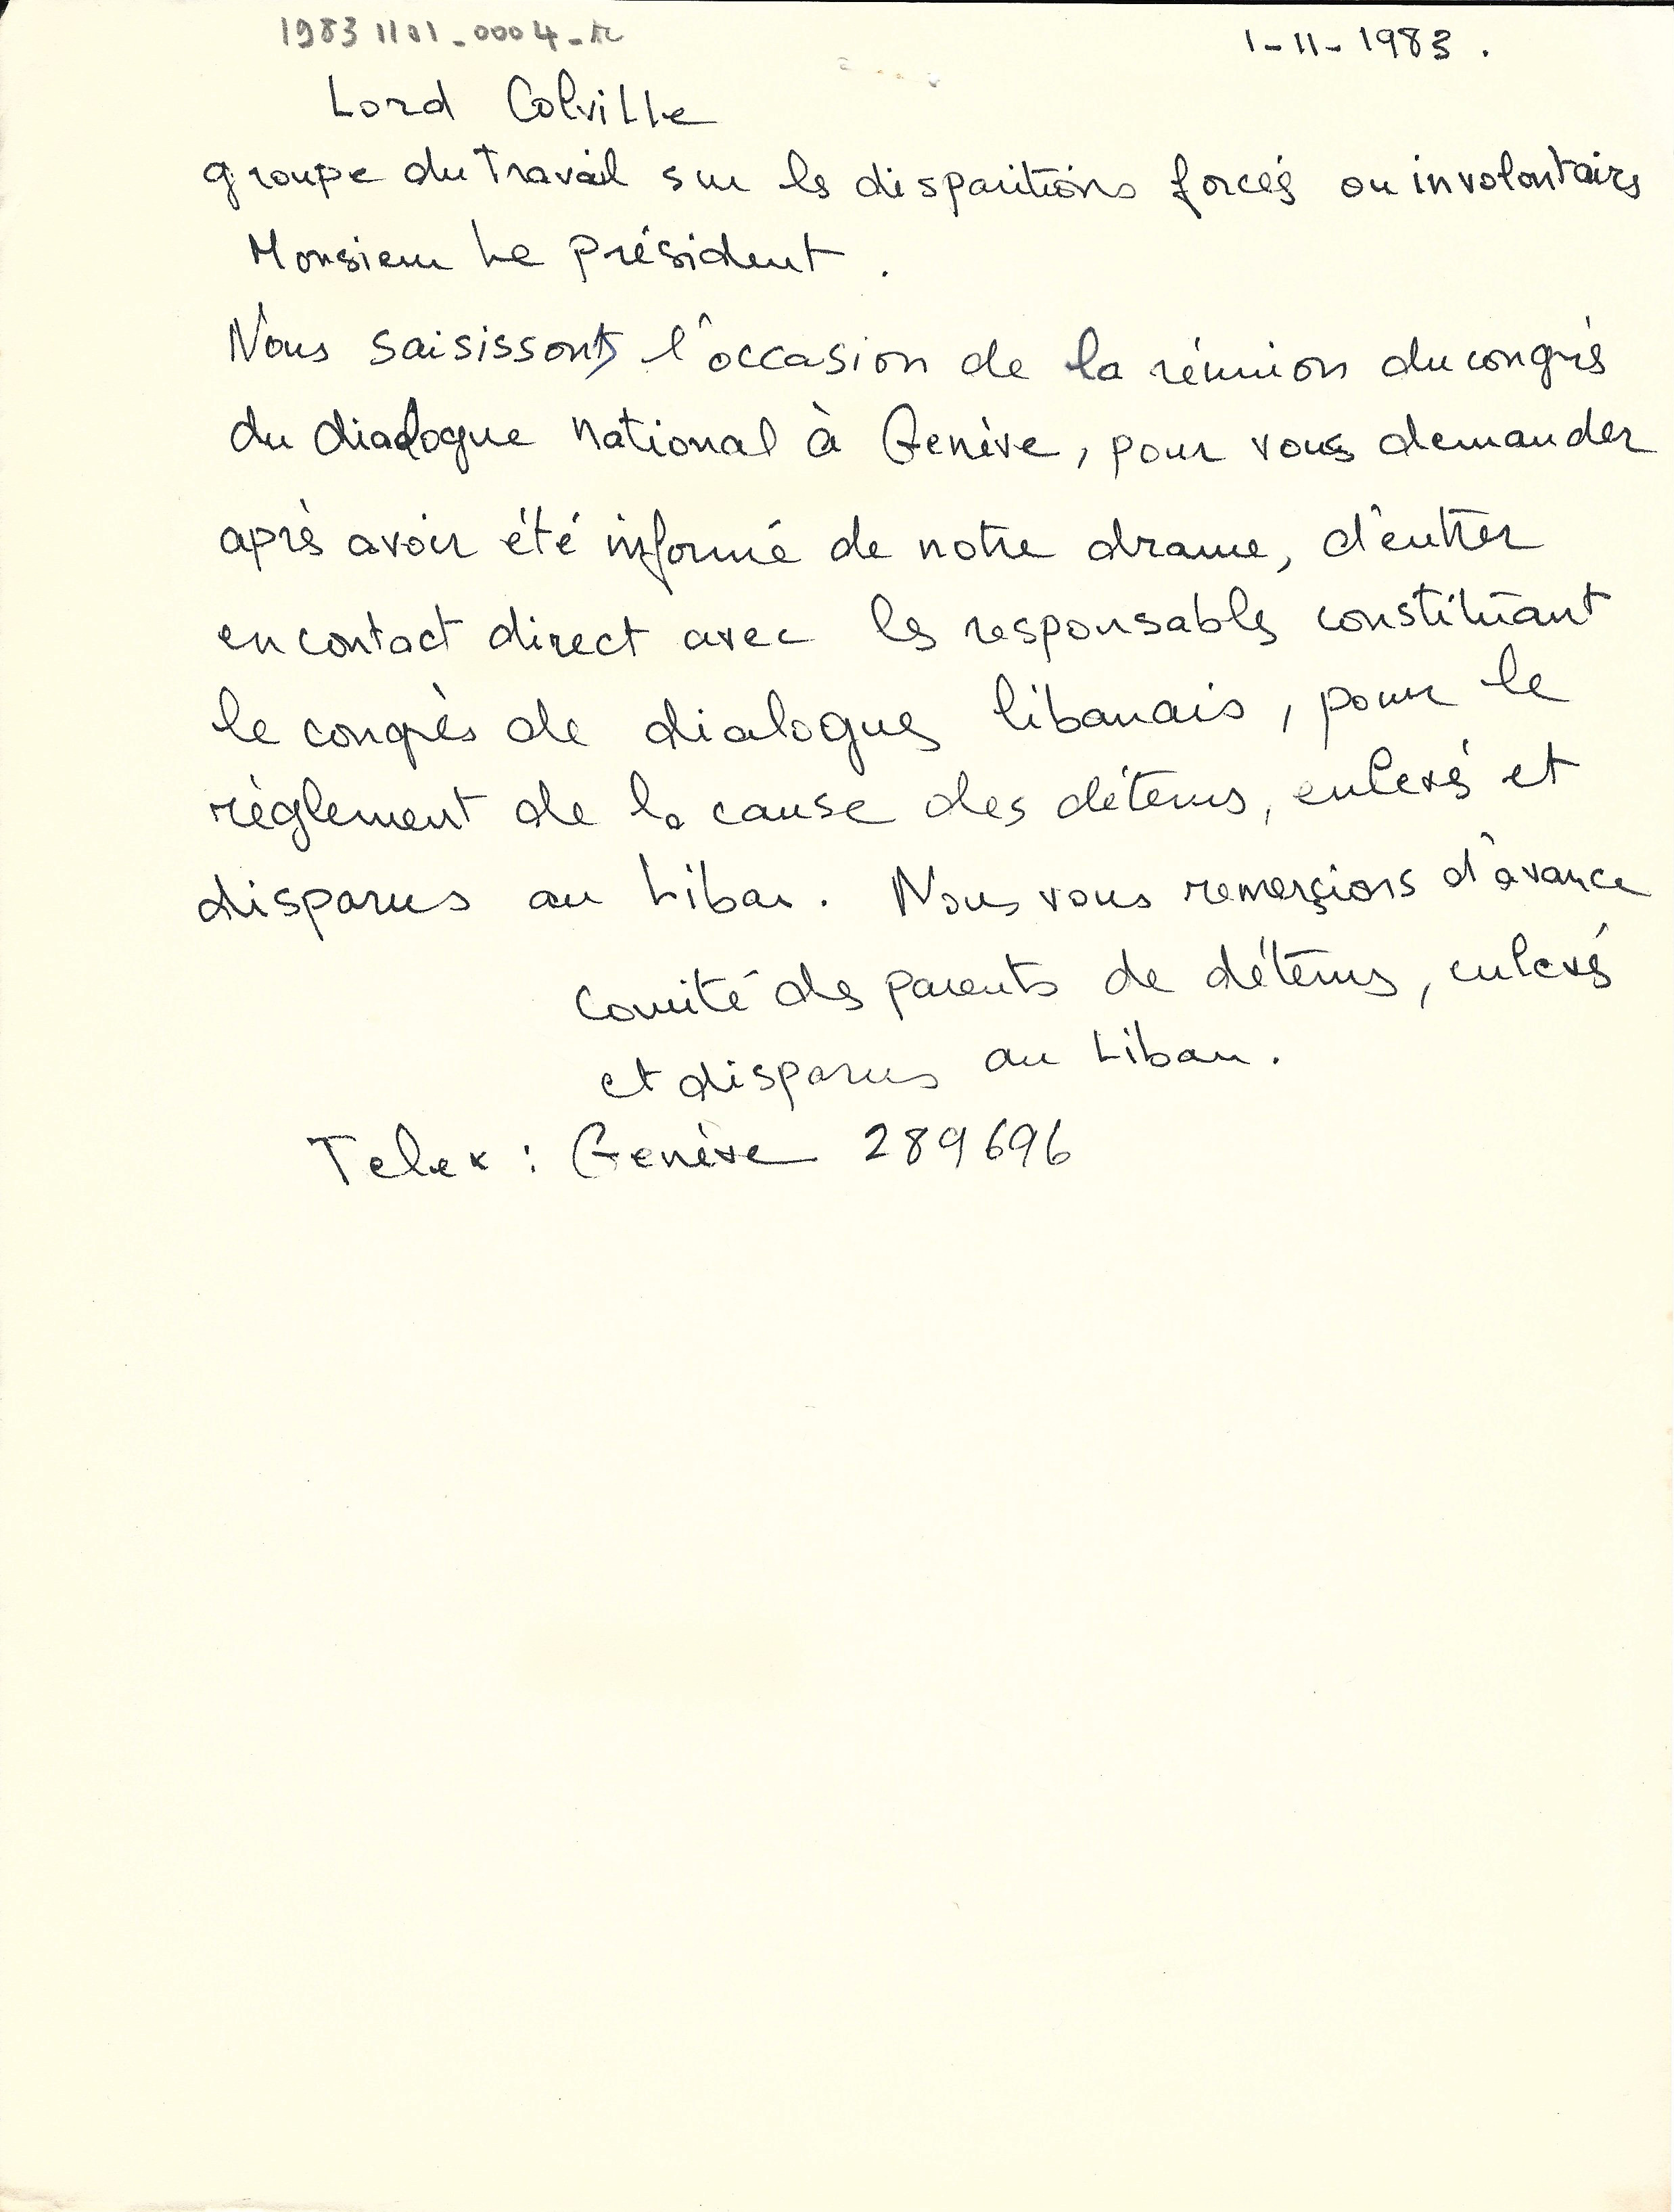 19831101-0004-R
1-11-1983.
Lord Colville
groupe du Travail sur les disparitions forcés ou involontaires
Monsieur Le président.
Nous saisissons l'occasion de la réunion du congrès
du dialogue national à Genève, pour vous demander
après avoir été informé de notre drame, d'entrer
en contact direct avec les responsables constituant
le congrès de dialogues libanais, pour le
règlement de la cause des détenus, enlevés et
disparus au Liban. Nous vous remerçions d'avance
Comité des parents de détenus, enlevés
et disparus au Liban.
Telex : Genève 289696